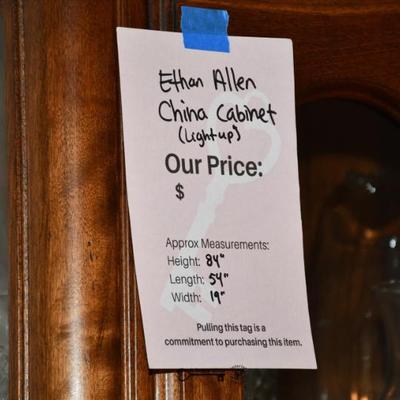 Ethan Allen
China Cabinet
(Light up)
Our Price:
$
Approx Measurements:
Height: 84"
Length: 54"
Width: 19"
Pulling this tag is a
commitment to purchasing this item.